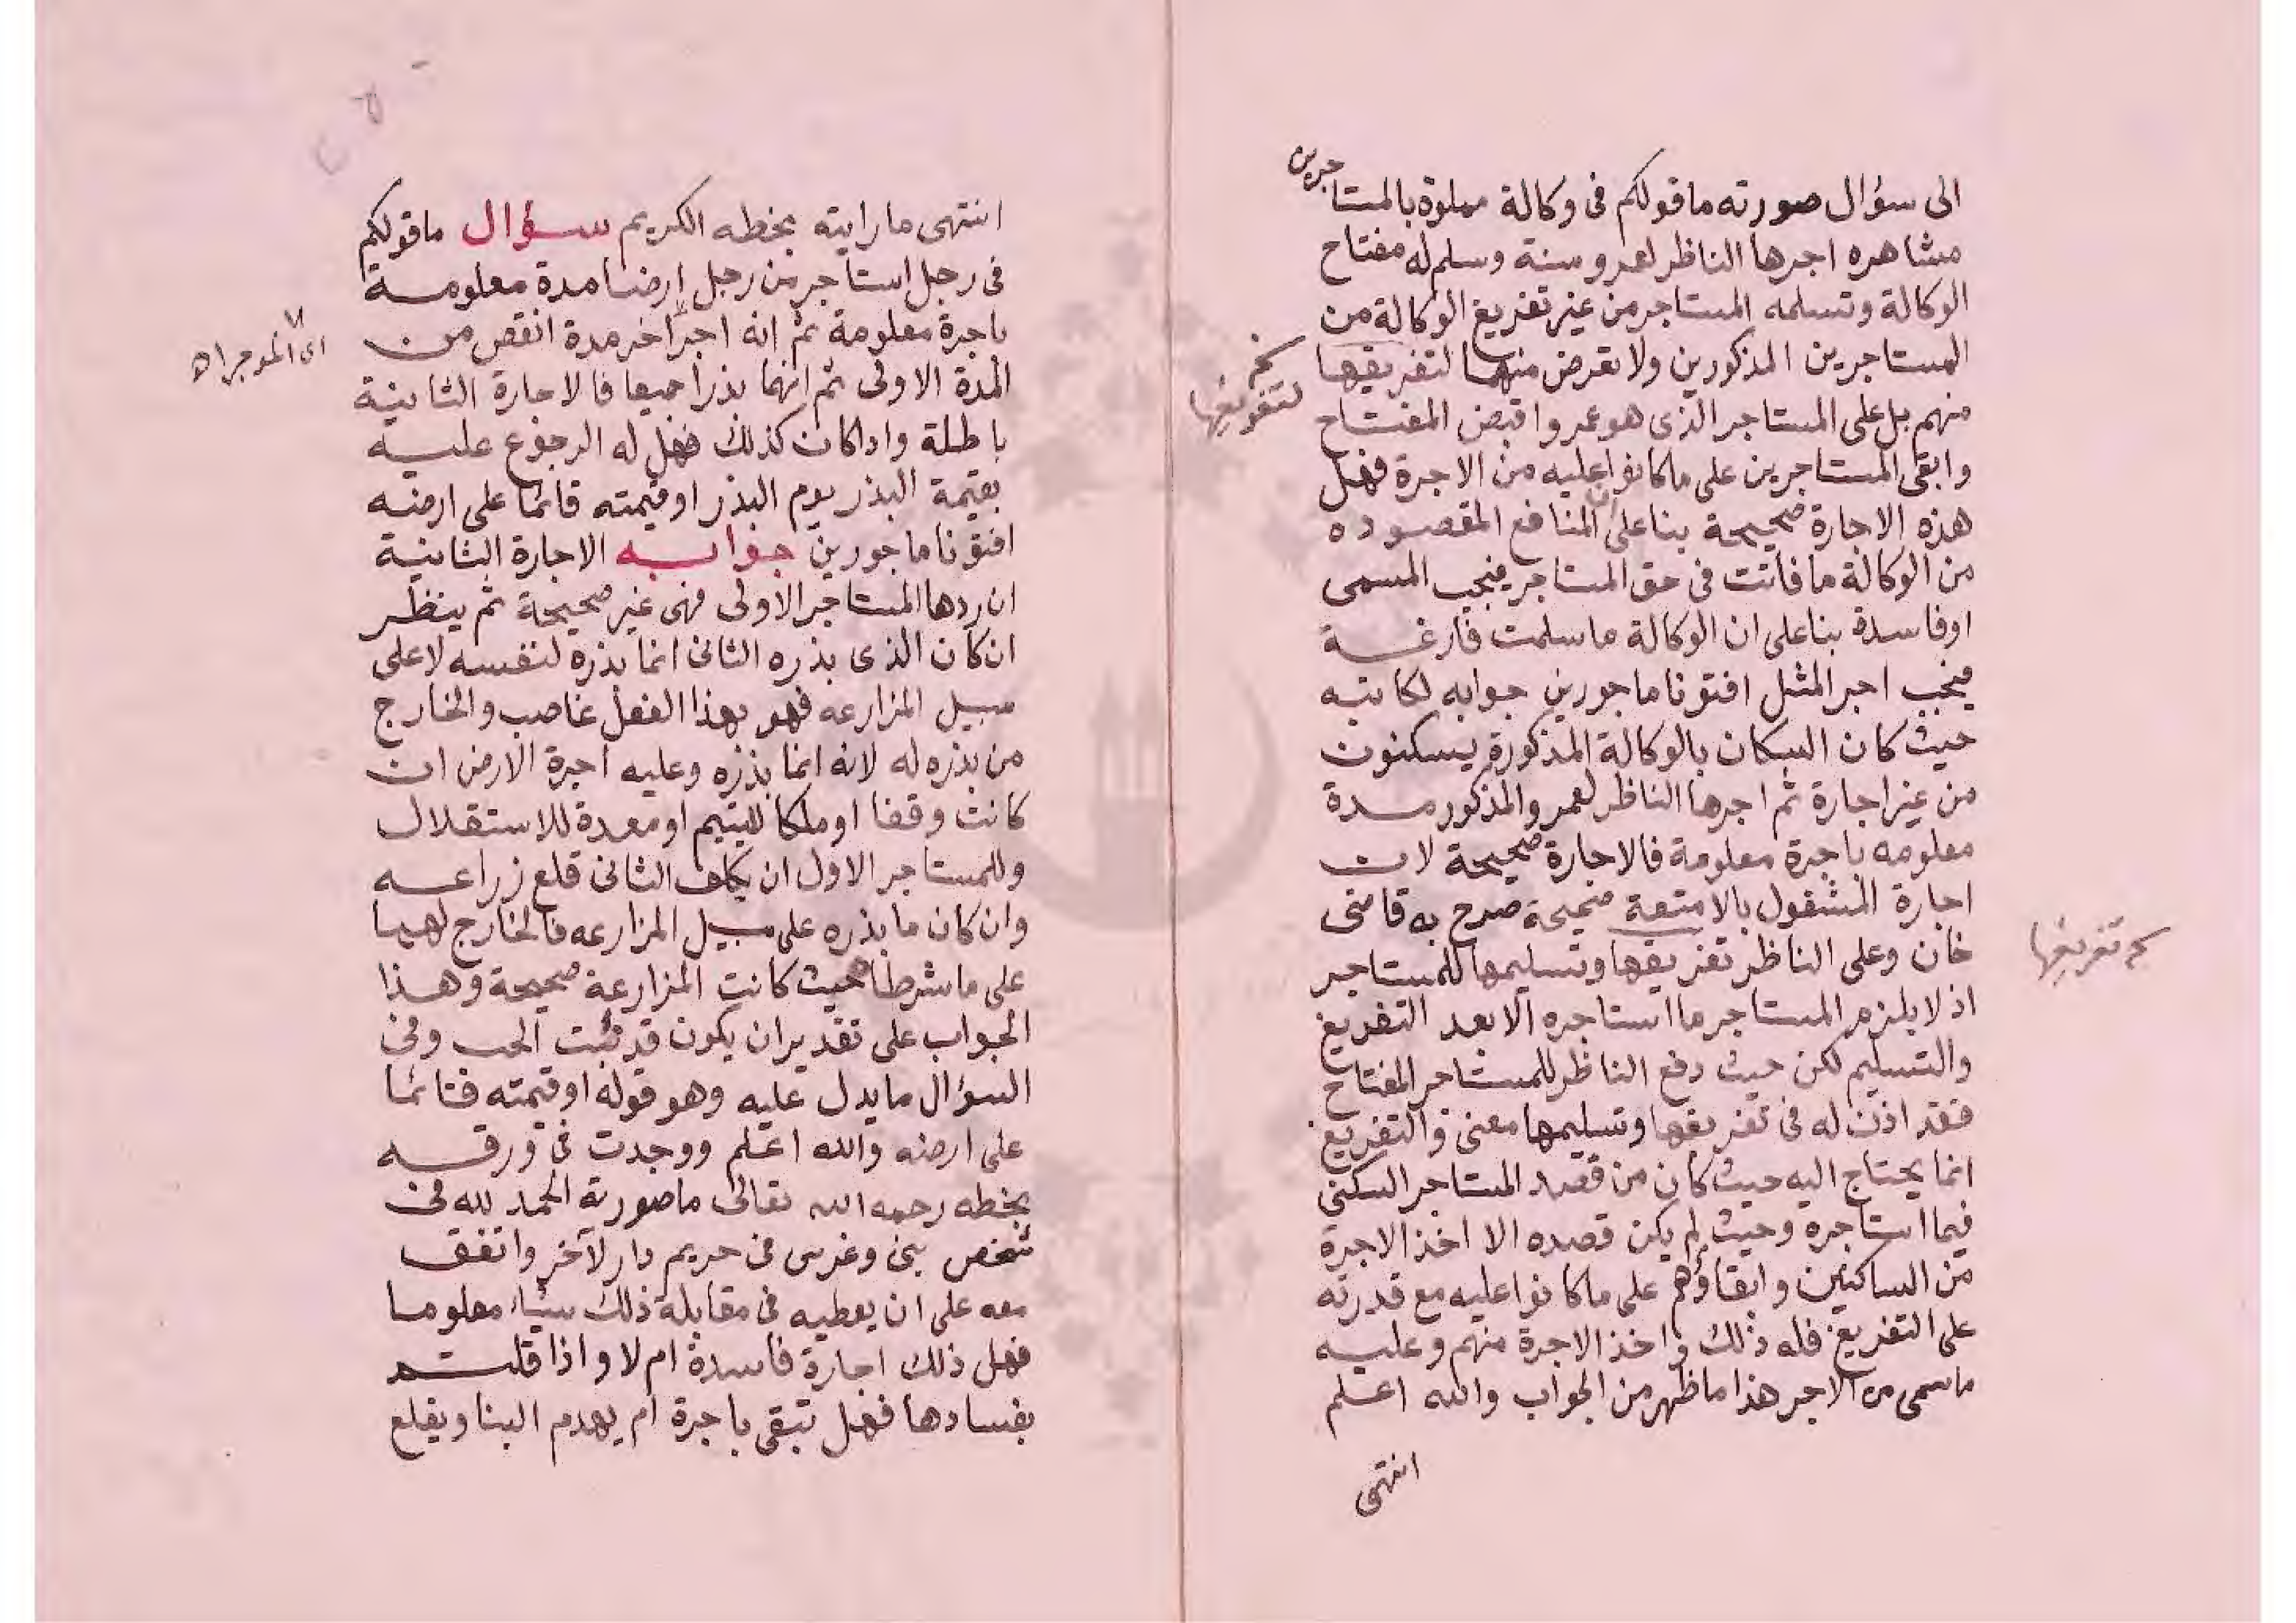 الى سؤال صورته ما قولكم فى وكالة مملوة بالمستاجرين
مشاهره اجرها الناظر لعمرو سنة وسلم له مفتاح
الوكالة وتسلمه المستاجر من غير تفريغ الوكالة من
المستاجرين المذكورين ولا تعرض منهما لتفريقها
منهم بل على المستاجر الذى هو عمروا قبض المفتاح
وابقى المستاجرين على ما كانوا عليه من الاجرة فهل
هذه الاجارة صحيحة بنا على ان المنافع المقصوده
من الوكالة ما فاتت فى حق المستاجر فيجب المسمى
اوفاسدة بنا على ان الوكالة ما سلمت فارغة
فيجب اجر المثل افتونا ماجورين جوابه لكاتبه
حيث كان السكان بالوكالة المذكورة يسكنون
من غير اجارة ثم اجرها الناظر لعمرو المذكور مدة
معلومه باجرة معلومة فالاجارة صحيحة لان
اجارة المشغول بالامتعة صحيحة صرح به قاضى
خان وعلى الناظر تفريقها وتسليمها للمستاجر
اذ لا يلزم المستاجر ما استاجره الا بعد التفريغ
والتسليم لكن حيث دفع الناظر للمستاجر المفتاح
فقد اذن له فى تفريقها وتسليمها معنى والتفريغ
انما يحتاج اليه حيث كان من قصد المستاجر السكنى
فيما استاجره وحيث لم يكن قصده الا اخذ الاجرة
من الساكنين وابقاؤهم على ما كانوا عليه مع قدرته
على التفريغ فله ذلك واخذ الاجرة منهم وعليه
ما سمى من الاجر هذا ما ظهر من الجواب والله اعلم
انتهى
تفريغها
انتهى ما رايته بخطه الكريم سؤال ما قولكم
فى رجل استاجر من رجل ارضا مدة معلومة
باجرة معلومة ثم انه اجر اخر مدة انقص من
المدة الاولى ثم انهما بذرا جميعا فالاجارة الثانية
باطلة واذا كان كذلك فهل له الرجوع عليه
بقيمة البذر يوم البذر او قيمته قائما على ارضه
افتونا ماجورين جوابه الاجارة الثانية
ان ردها المستاجر الاولى فهى غير صحيحة ثم ينظر
ان كان الذى بذره الثانى انما بذره لنفسه لا على
سبيل المزارعه فهو بهذا الفعل غاصب والخارج
من بذره له لانه انما بذره وعليه اجرة الارض ان
كانت وقفا او ملكا لليتيم او معدة للاستقلال
وللمستاجر الاول ان يكلف الثانى قلع زراعه
وان كان ما بذره على سبيل المزارعه فالخارج لهما
على ما شرطا حيث كانت المزارعة صحيحة وهذا
الجواب على تقدير ان يكون قد نبت الحب وفى
السؤال ما يدل عليه وهو قوله او قيمته قائما
على ارضه والله اعلم ووجدت فى ورقه
بخطه رحمه الله تعالى ما صورته الحمد لله فى
شخص بنى وغرس فى حريم دار لآخر واتفق
معه على ان يعطيه فى مقابلة ذلك شيأ معلوما
فهل ذلك اجارة فاسدة ام لا واذا قلتم
بفسادها فهل تبقى باجرة ام يهدم البنا ويقلع